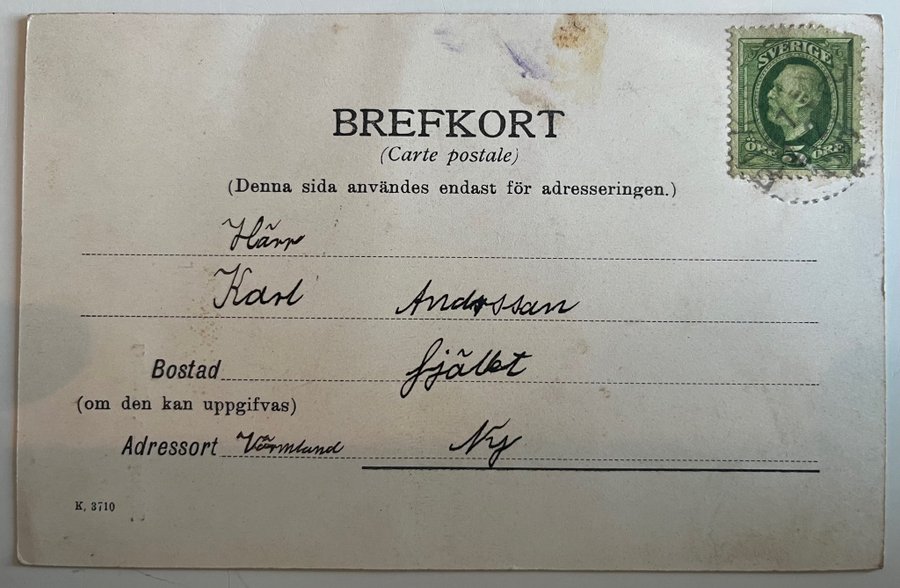 SVERIGE
ÖRE 5 ÖRE
BREFKORT
(Carte postale)
(Denna sida användes endast för adresseringen.)
Härr
Karl Andrssan
Bostad fjället
(om den kan uppgifvas)
Adressort Värmland Ny
K. 3710